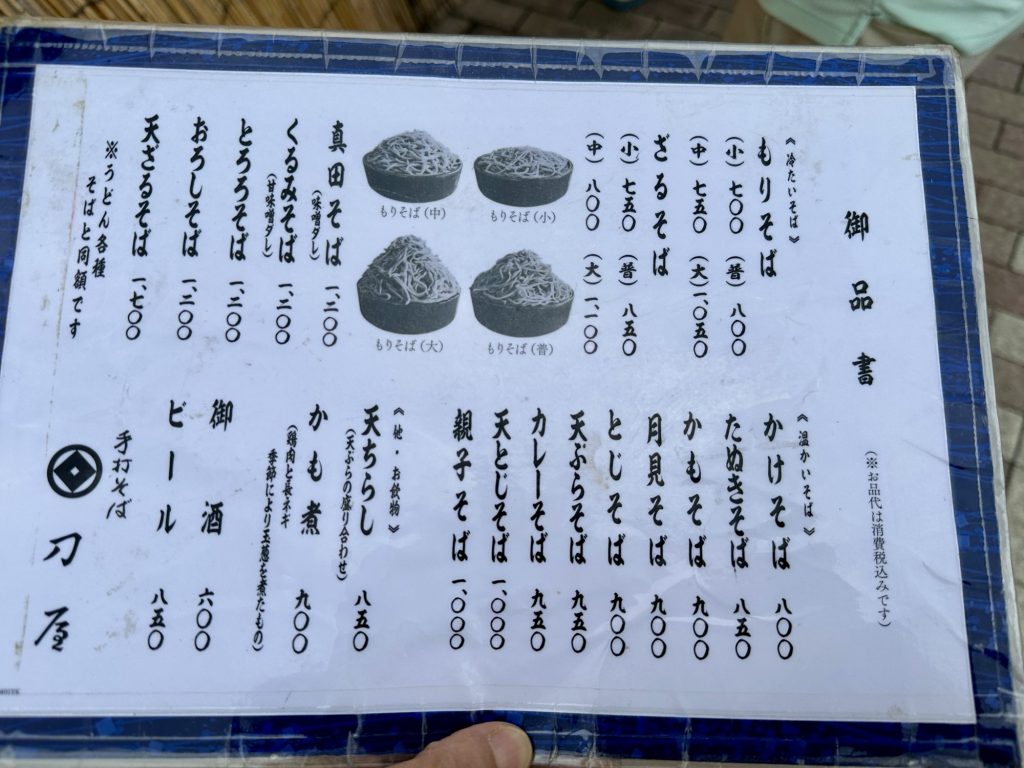 御品書
(※お品代は消費税込みです)
《冷たいそば》
もりそば
(小)七〇〇 (普)八〇〇
(中)七五〇 (大)一、〇五〇
ざるそば
(小)七五〇 (普)八五〇
(中)八〇〇 (大)一、一〇〇
もりそば(小)
もりそば(普)
もりそば(中)
もりそば(大)
真田そば 一、二〇〇
(味噌ダレ)
くるみそば 一、二〇〇
(甘味噌ダレ)
とろろそば 一、二〇〇
おろしそば 一、二〇〇
天ざるそば 一、七〇〇
※うどん各種
そばと同額です
《温かいそば》
かけそば 八〇〇
たぬきそば 八五〇
かもそば 九〇〇
月見そば 九〇〇
とじそば 九〇〇
天ぷらそば 九五〇
カレーそば 九五〇
天とじそば 一、〇〇〇
親子そば 一、〇〇〇
《他・お飲物》
天ちらし 八五〇
(天ぷらの盛り合わせ)
かも煮 九〇〇
(鶏肉と長ネギ
季節により玉葱を煮たもの)
御酒 六〇〇
ビール 八五〇
手打そば
刀屋